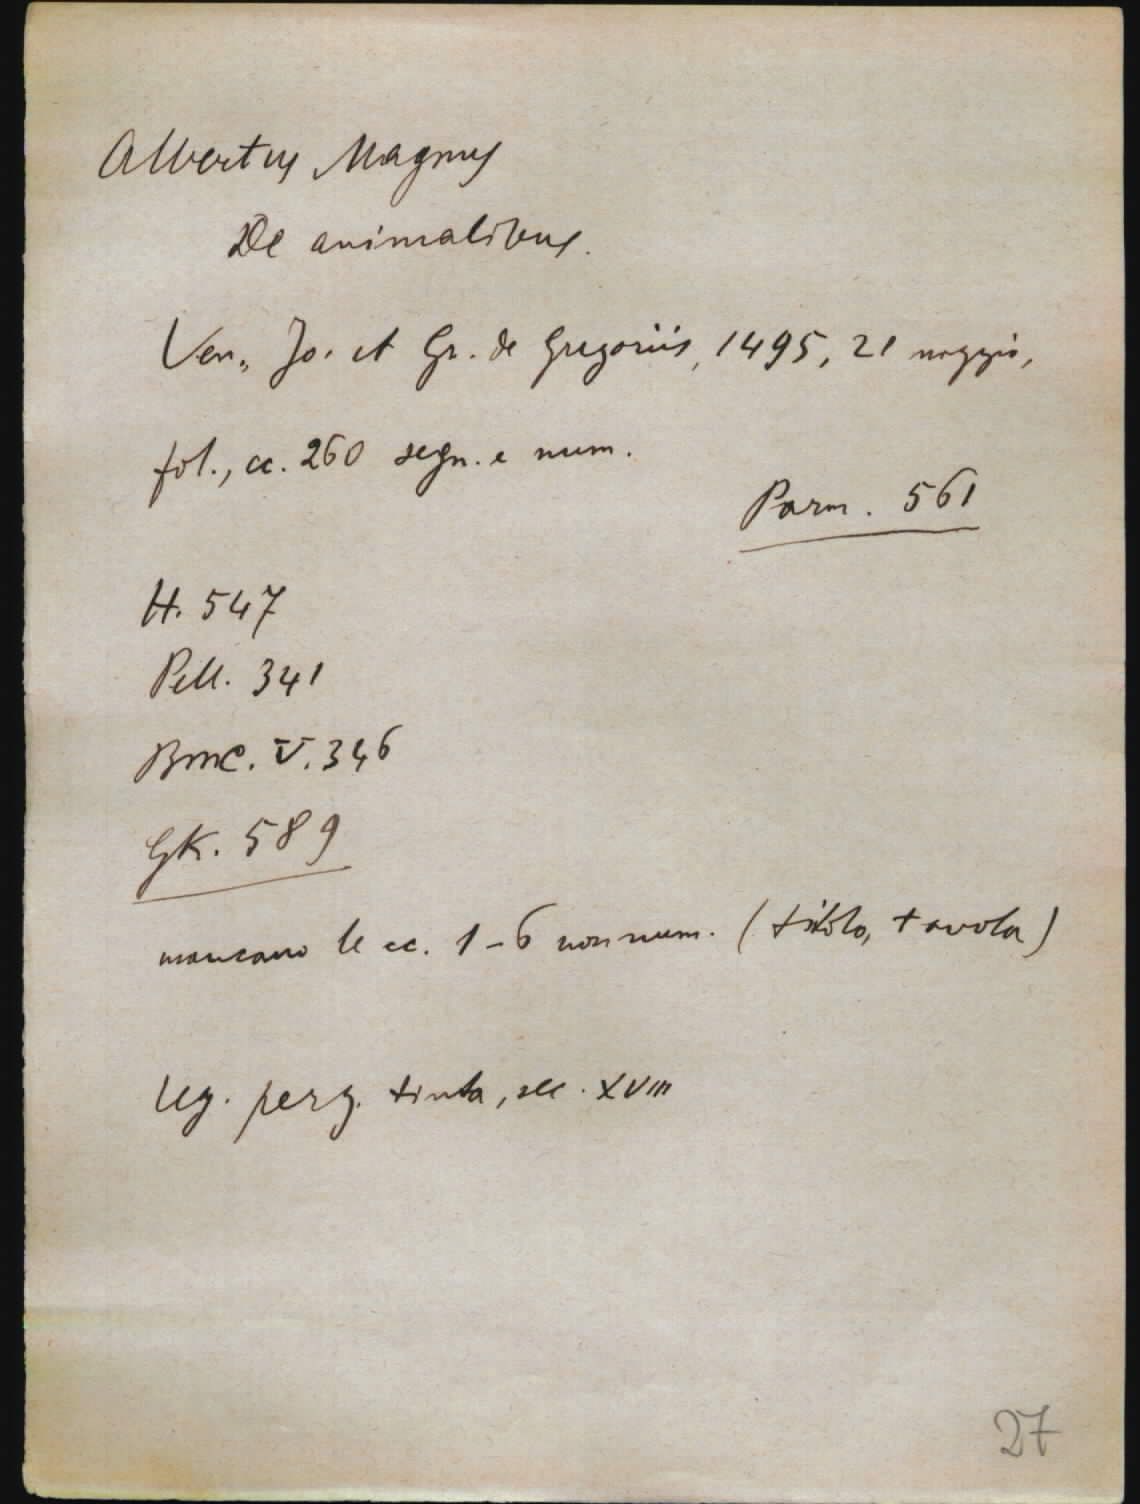 Albertus Magnus
De animalibus.
Ven., Jo. et Gr. de Gregoriis, 1495, 21 maggio,
fol., cc. 260 segn. e num.
Parm. 561
H. 547
Pell. 341
BMC. V. 346
GK. 589
mancano le cc. 1-6 non num. (titolo, tavola)
Leg. perg. tinta, sec. XVIII
27